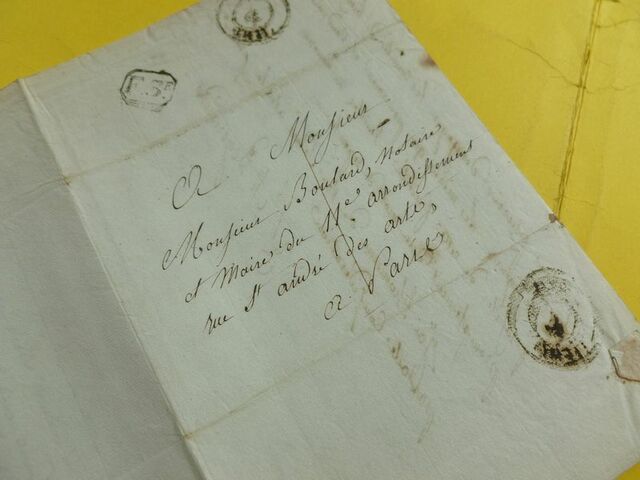 A Monsieur
Monsieur Boulard, Notaire
et Maire du 11e arrondissement
rue St andré des arts,
a Paris